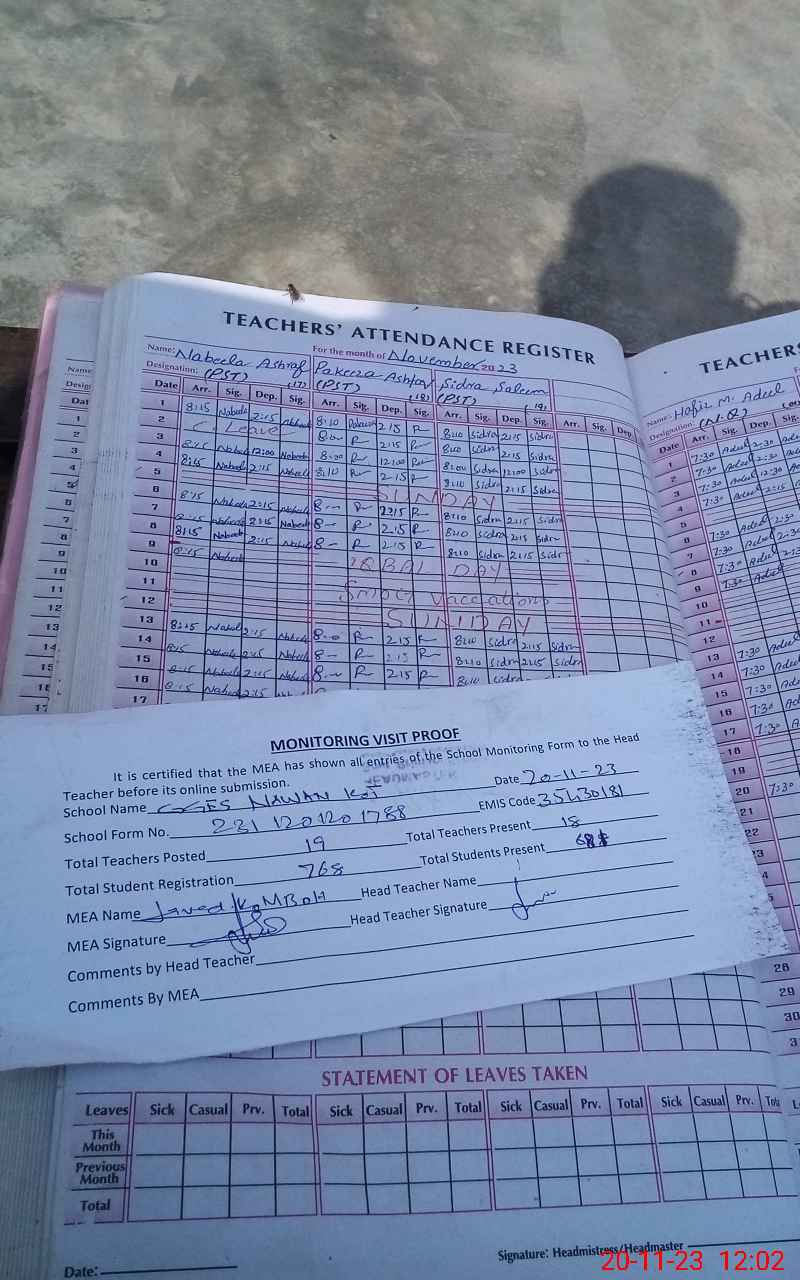 TEACHERS' ATTENDANCE REGISTER
For the month of November 2023
Name: Nabeela Ashraf Pakeeza Ashfaq Sidra Saleem
Designation: (PST) (17) (PST) (18) (PST) (19)
Date Arr. Sig. Dep. Sig. Arr. Sig. Dep. Sig. Arr. Sig. Dep. Sig. Arr. Sig. Dep.
1 8:15 Nabeela 2:15 8:10 2:15 R 8:10 Sidra 2:15 Sidra
2 C. Leave 8:00 R 2:15 R 8:10 Sidra 2:15 Sidra
3 8:15 Nabeela 12:00 Nabeela 8:00 R 12:00 R 8:10 Sidra 12:00 Sidra
4 8:15 Nabeela 2:15 Nabeela 8:10 R 2:15 R 8:10 Sidra 2:15 Sidra
5 SUNDAY
6 8:15 Nabeela 2:15 Nabeela 8:00 R 2:15 R 8:10 Sidra 2:15 Sidra
7 8:15 Nabeela 2:15 Nabeela 8:00 R 2:15 R 8:10 Sidra 2:15 Sidra
8 8:15 Nabeela 2:15 Nabeela 8:00 R 2:15 R 8:10 Sidra 2:15 Sidra
9 8:15 Nabeela IQBAL DAY
10
11 Smog Vaccations
12 SUNDAY
13 8:15 Nabeela 2:15 Nabeela 8:00 R 2:15 R 8:10 Sidra 2:15 Sidra
14 8:15 Nabeela 2:15 Nabeela 8:00 R 2:15 R 8:10 Sidra 2:15 Sidra
15 8:15 Nabeela 2:15 Nabeela 8:00 R 2:15 R 8:10 Sidra
16 8:15 Nabeela 2:15
17
TEACHERS
Name: Hafiz M. Adeel
Designation: (N.Q)
Date Arr. Sig. Dep. Sig.
1 7:30 Adeel 2:30
2 7:30 Adeel 2:30
3 7:30 Adeel 12:30
4 7:30 Adeel 2:15
5
6 7:30 Adeel 2:30
7 7:30 Adeel 2:30
8 7:30 Adeel 2:30
9 7:30 Adeel
10
11
12
13 7:30 Adeel
14 7:30 Adeel
15 7:30 Adeel
16 7:30 Adeel
17 7:30 Adeel
18
19
20 7:30
21
22
28
29
30
MONITORING VISIT PROOF
It is certified that the MEA has shown all entries of the School Monitoring Form to the Head
Teacher before its online submission.
Date 20-11-23
School Name GGES NAWAN KOT
EMIS Code 35430181
School Form No. 2311201201788
Total Teachers Posted 19 Total Teachers Present 18
Total Student Registration 768 Total Students Present
MEA Name Javed KAMBOH Head Teacher Name
MEA Signature Head Teacher Signature
Comments by Head Teacher
Comments By MEA
STATEMENT OF LEAVES TAKEN
Leaves Sick Casual Prv. Total Sick Casual Prv. Total Sick Casual Prv. Total Sick Casual Prv.
This Month
Previous Month
Total
Date: Signature: Headmistress/Headmaster
20-11-23 12:02